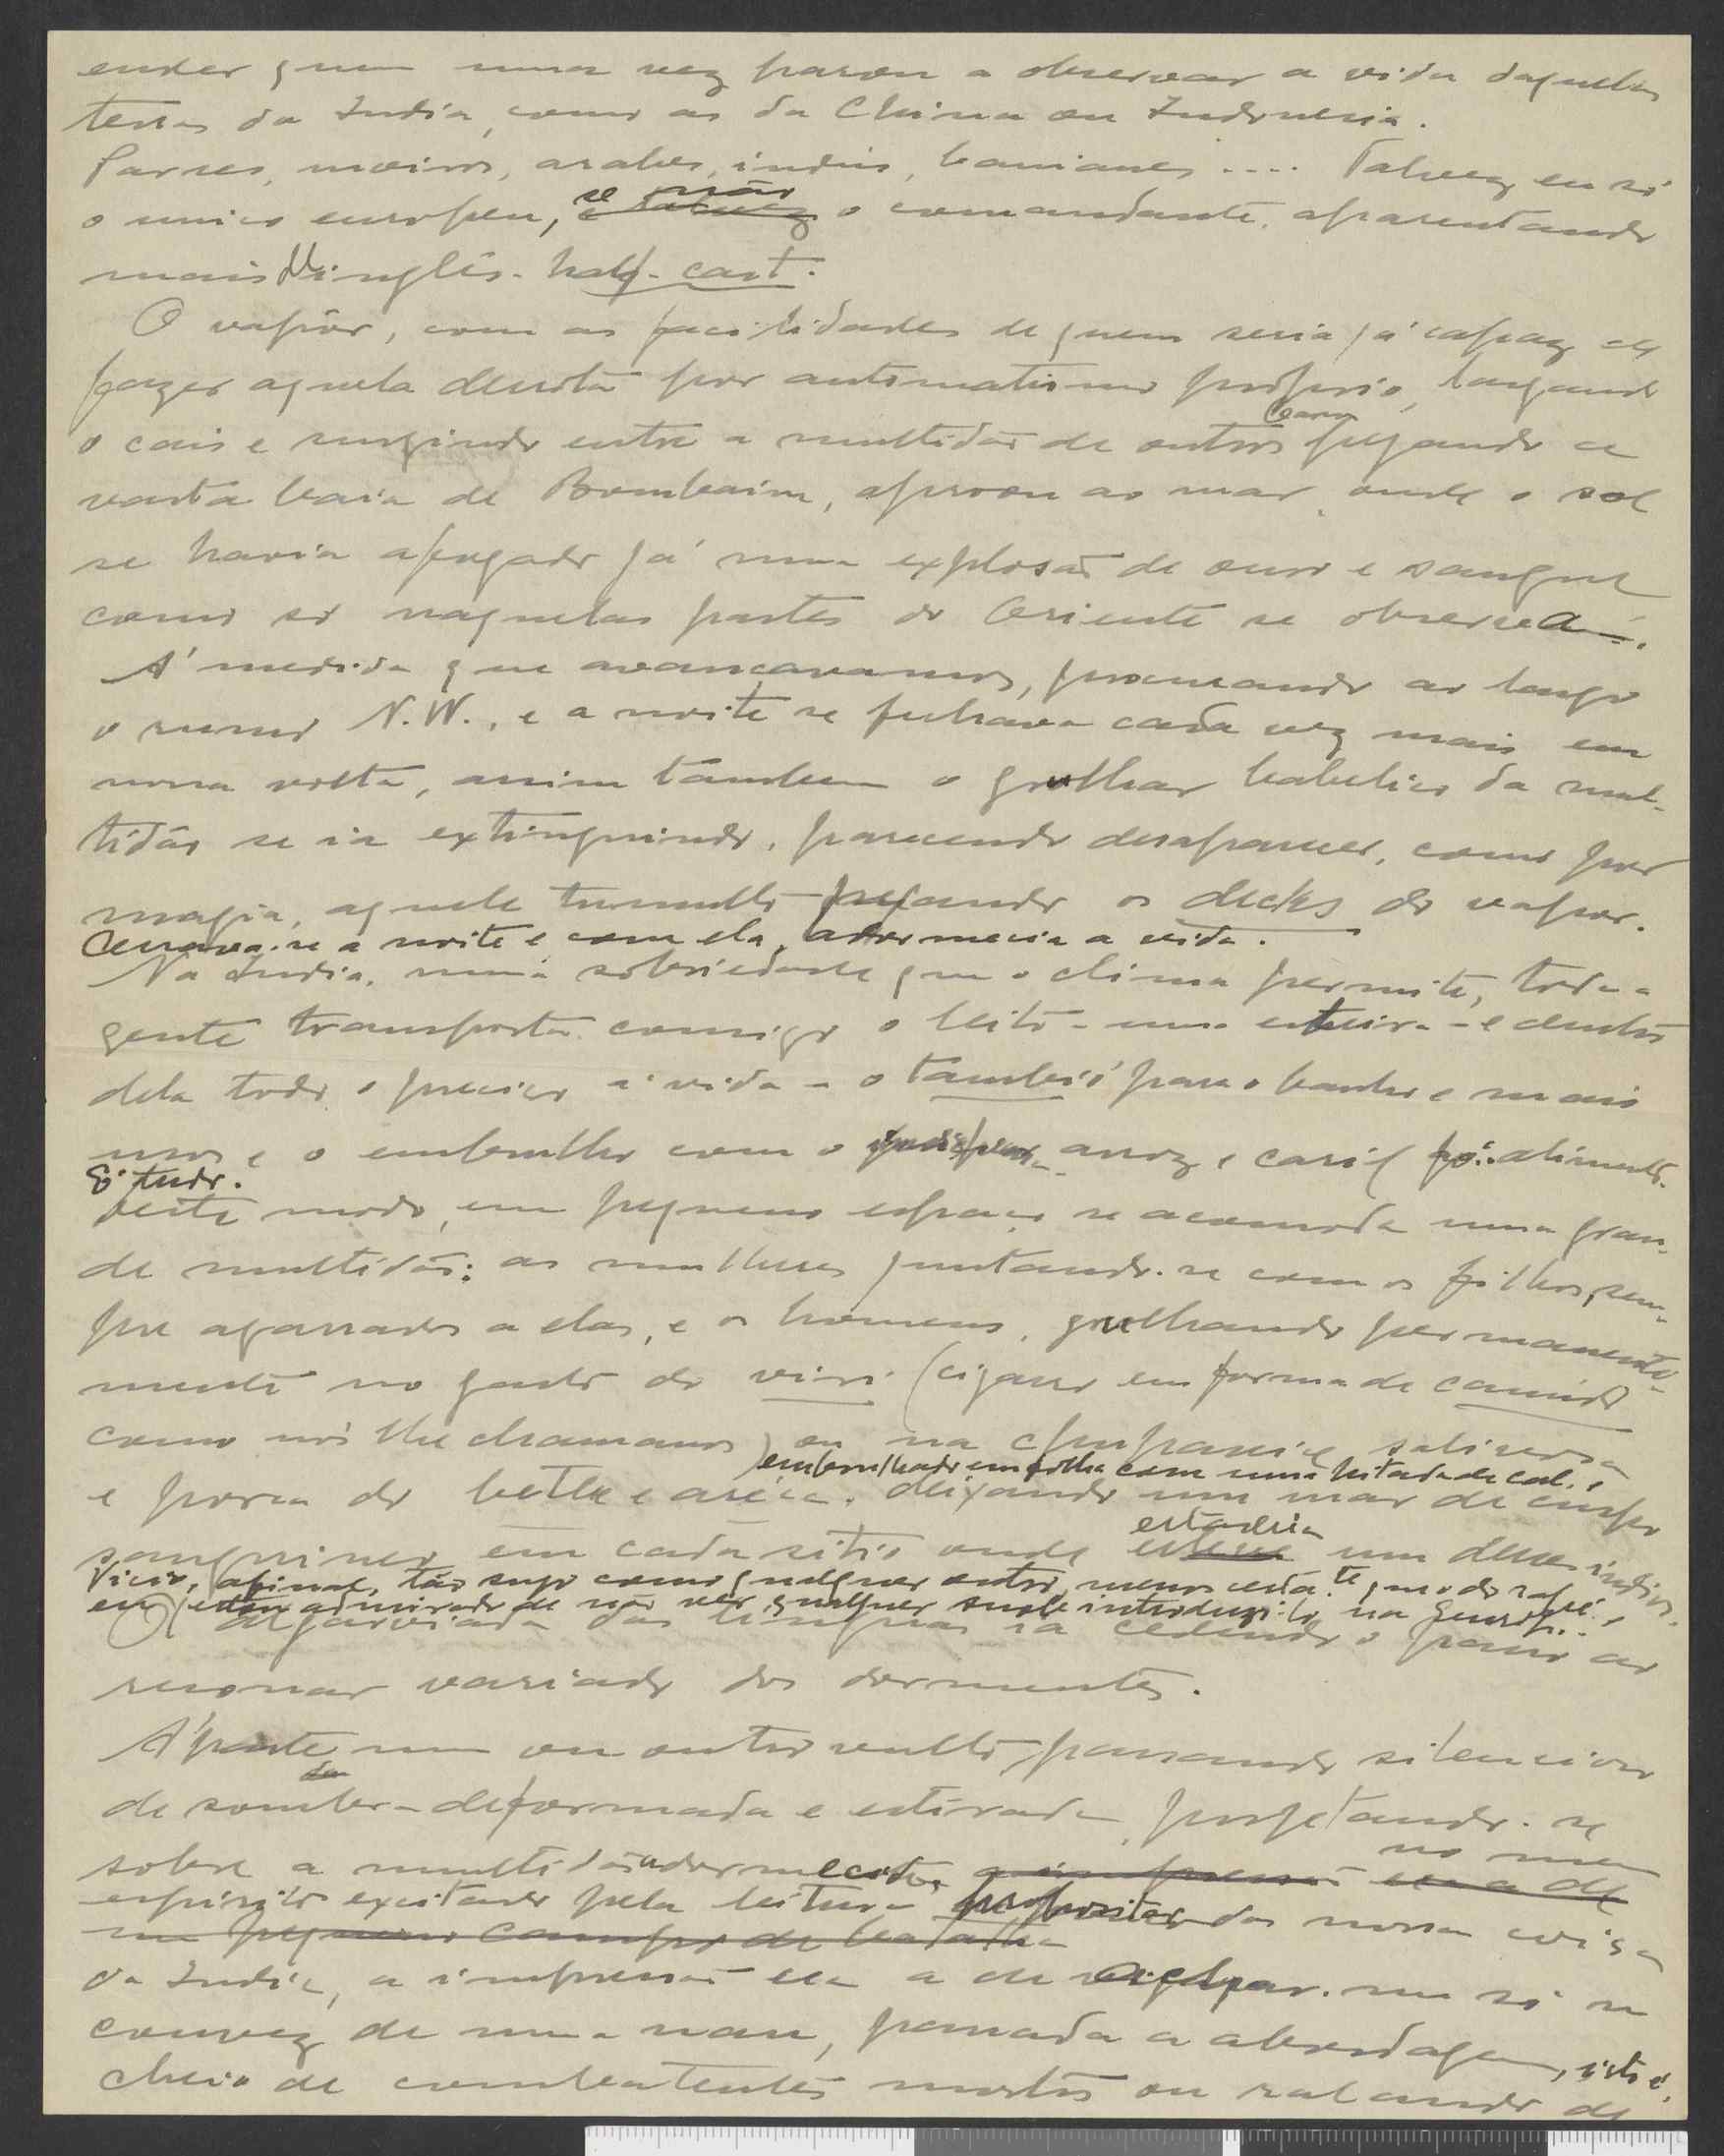 ender quem uma vez parou a observar a vida daquelas
terras da India, como as da China ou Indonesia.
Parses, moiros, arabes, indús, banianes .... Talvez eu só
o unico europeu, e talvez se não o comandante, aparentando
mais inglês - half-cast.
O vapôr, com as facilidades de quem seria já capaz de
fazer aquela derrota por automatismo próprio, largando
o cais e surgindo entre a multidão de outros barcos pejando a
vasta baia de Bombaim, aproou ao mar, onde o sol
se havia afogado já numa explosão de ouro e sangue
como só naquelas partes do Oriente se observa.
A' medida que avançavamos, procurando ao largo
o rumo N.W., e a noite se fechava cada vez mais em
nossa volta, assim tambem o grulhar babelico da mul-
tidão se ia extinguindo, parecendo desaparecer, como por
magia, aquele tumulto pejando os decks do vapor.
Cerrava-se a noite e, com ela, adormecia a vida.
Na India, numa sobriedade que o clima permite, toda a
gente transporta comsigo o leito - uma esteira - e dentro
dela todo o preciso á vida - o tambió para o banho e mais
usos e o embrulho com o arroz e caril pó: alimento.
E' tudo.
Deste modo, em pequeno espaço se acomoda uma gran-
de multidão: as mulheres juntando-se com os filhos, sem-
pre agarrados a elas, e os homens, grulhando permanente-
mente no gasto do viri (cigarro em forma de canudo
como nós lhe chamamos) ou na saliveira
embrulhado em folha com uma pitada de cal,
e porca do bethle e aréca, deixando um mar de cuspo
estadeia
sanguineo em cada sitio onde esteve um desses indios.
Vicio, afinal, tão sujo como qualquer outro, menos que o do rapé,
eu admirado de não ver qualquer snob introduzi-lo na Europa..
A algaraviada das linguas ia cedendo o passo ao
ressonar variado dos dormentes.
A'parte um ou outro vulto, passando silencioso
de sombra deformada e estirada, projetando-se
sobre a multidão adormecida, a impressão era a de no meu
espirito excitado pela leitura das nossas coisas
um pequeno campo de batalha
da India, a impressão era a de me só no
convez de uma nau, passada a abordagem, isto é,
cheio de combatentes mortos ou ralando de